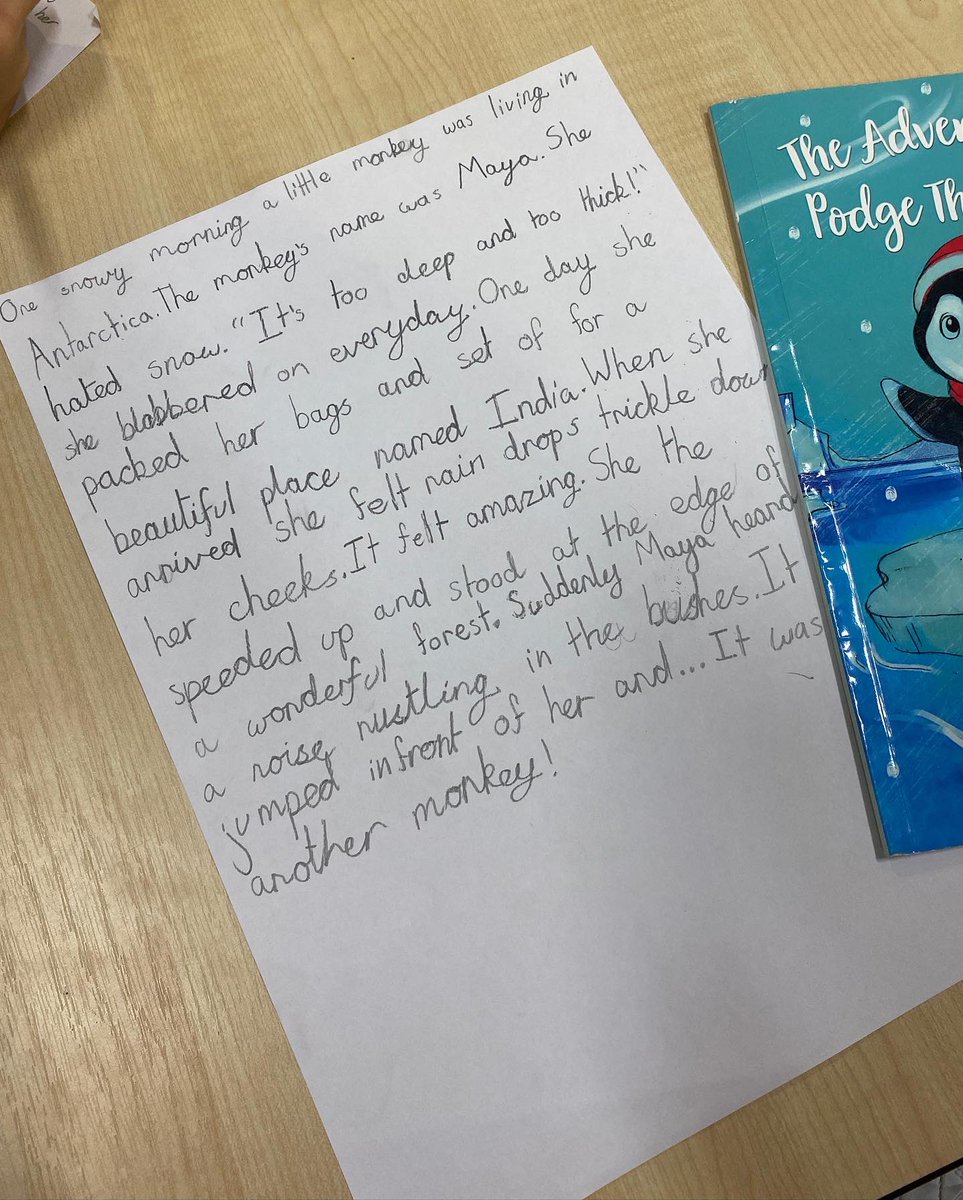 her
One snowy morning a little monkey was living in
Antarctica. The monkey's name was Maya. She
hated snow. "It's too deep and too thick!"
she blabbered on everyday. One day she
packed her bags and set of for a
beautiful place named India. When she
arrived she felt rain drops trickle down
her cheeks. It felt amazing. She the
speeded up and stood at the edge of
a wonderful forest. Suddenly Maya heard
a noise rustling in the bushes. It
jumped infront of her and... It was
another monkey!
The Adven
Podge Th